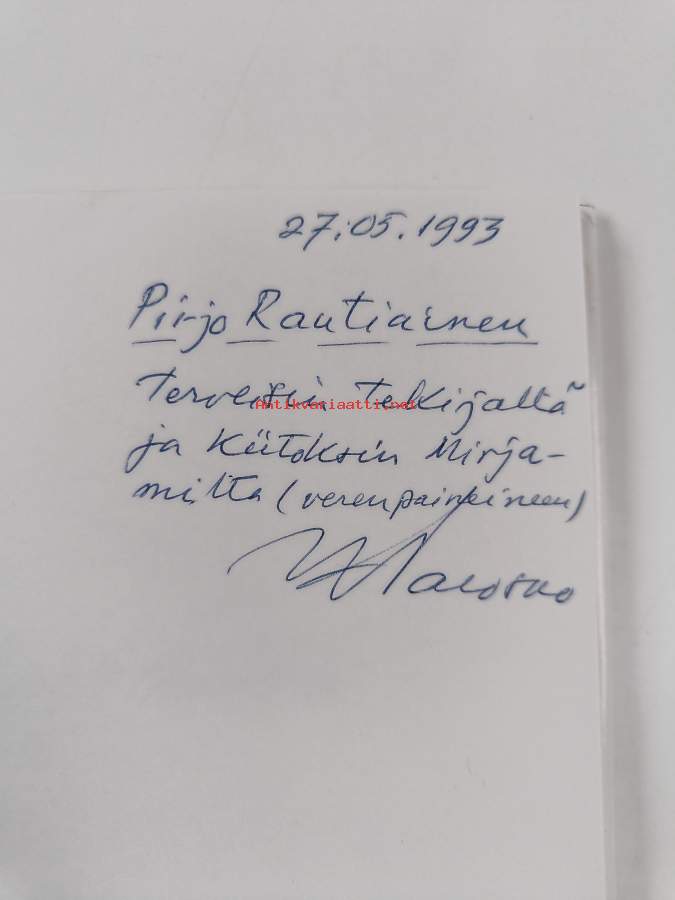 27.05.1993
Pirjo Rautiainen
terveisin tekijältä
Antikvariaatti.net
ja kiitoksin Mirja-
milta (verenpaineineen)